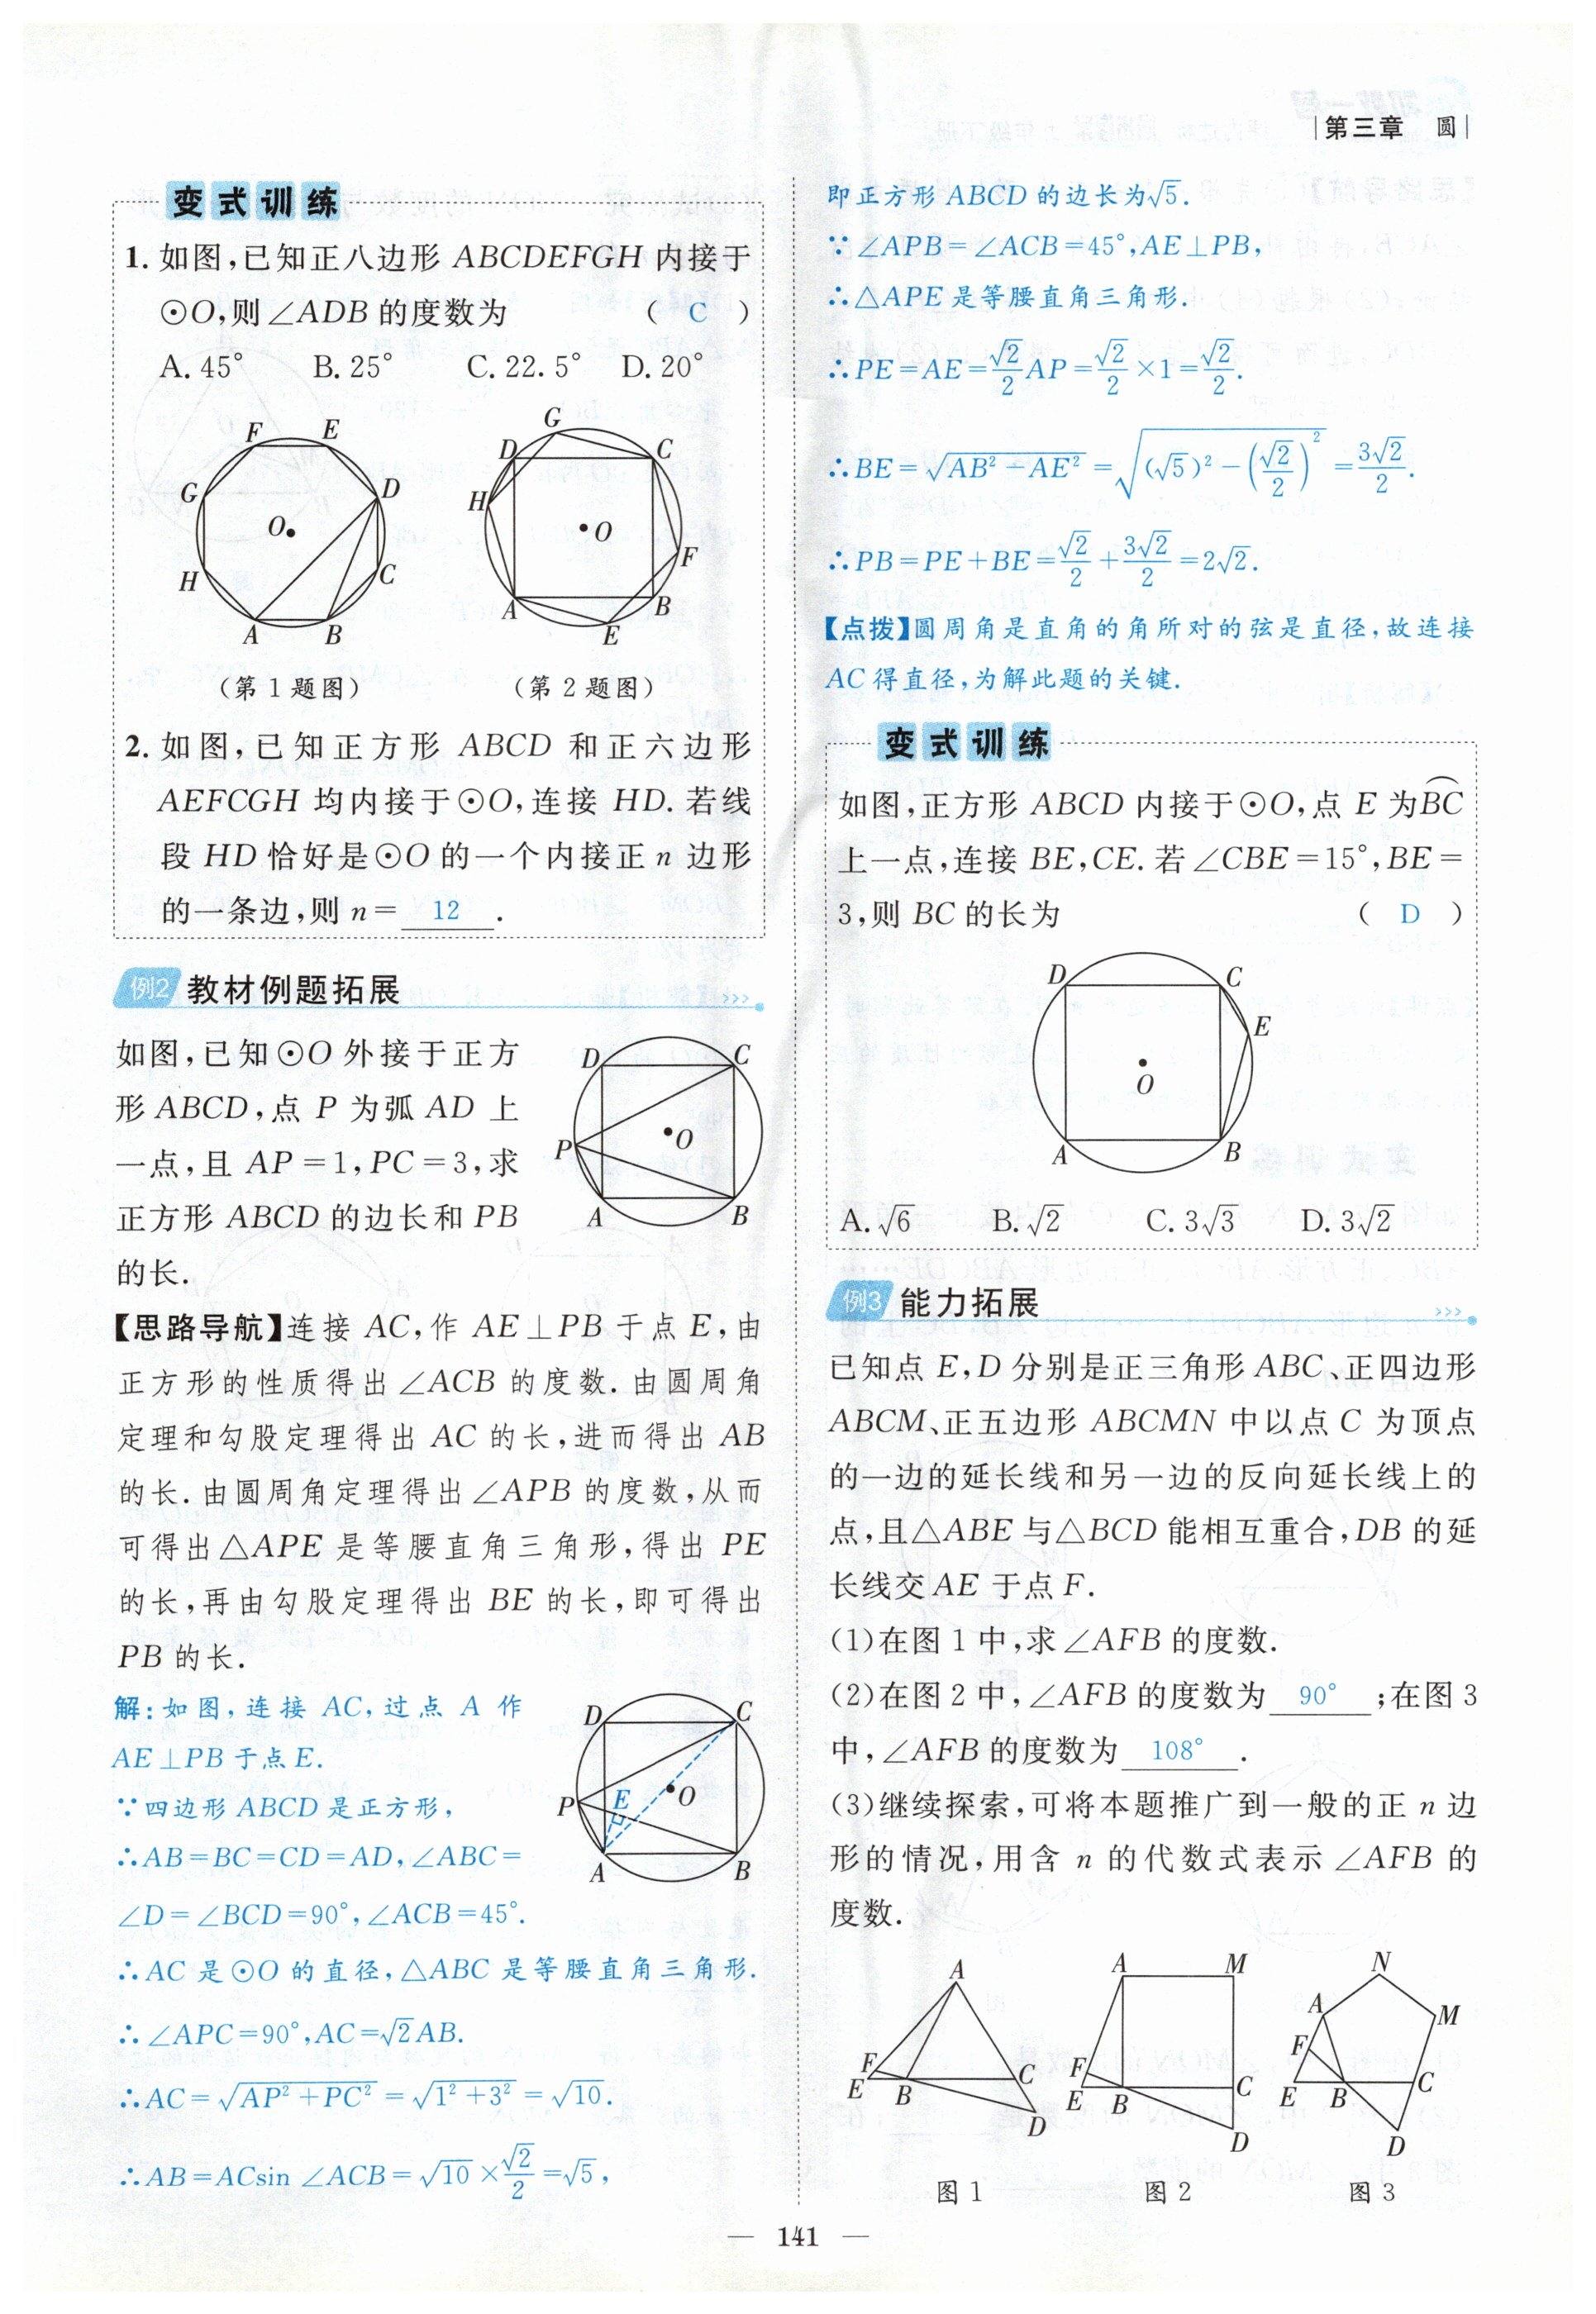 |第三章 圆|
变式训练
1. 如图,已知正八边形 ABCDEFGH 内接于
⊙O,则∠ADB 的度数为 ( C )
A. 45° B. 25° C. 22.5° D. 20°
F E G D O H C A B
G D C H O F A B E
(第 1 题图) (第 2 题图)
2. 如图,已知正方形 ABCD 和正六边形
AEFCGH 均内接于⊙O,连接 HD. 若线
段 HD 恰好是⊙O 的一个内接正 n 边形
的一条边,则 n= 12 .
例2 教材例题拓展
如图,已知⊙O 外接于正方
形 ABCD,点 P 为弧 AD 上
一点,且 AP=1,PC=3,求
正方形 ABCD 的边长和 PB
的长.
D C P O A B
【思路导航】连接 AC,作 AE⊥PB 于点 E,由
正方形的性质得出∠ACB 的度数. 由圆周角
定理和勾股定理得出 AC 的长,进而得出 AB
的长. 由圆周角定理得出∠APB 的度数,从而
可得出△APE 是等腰直角三角形,得出 PE
的长,再由勾股定理得出 BE 的长,即可得出
PB 的长.
解:如图,连接 AC,过点 A 作
AE⊥PB 于点 E.
∵四边形 ABCD 是正方形,
∴AB=BC=CD=AD,∠ABC=
∠D=∠BCD=90°,∠ACB=45°.
D C P E O A B
∴AC 是⊙O 的直径,△ABC 是等腰直角三角形.
∴∠APC=90°,AC=√2AB.
∴AC=√(AP²+PC²)=√(1²+3²)=√10.
∴AB=ACsin ∠ACB=√10×√2/2=√5,
即正方形 ABCD 的边长为√5.
∵∠APB=∠ACB=45°,AE⊥PB,
∴△APE 是等腰直角三角形.
∴PE=AE=√2/2AP=√2/2×1=√2/2.
∴BE=√(AB²-AE²)=√((√5)²-(√2/2)²)=3√2/2.
∴PB=PE+BE=√2/2+3√2/2=2√2.
【点拨】圆周角是直角的角所对的弦是直径,故连接
AC 得直径,为解此题的关键.
变式训练
如图,正方形 ABCD 内接于⊙O,点 E 为⌒BC
上一点,连接 BE,CE. 若∠CBE=15°,BE=
3,则 BC 的长为 ( D )
D C E O A B
A. √6 B. √2 C. 3√3 D. 3√2
例3 能力拓展
已知点 E,D 分别是正三角形 ABC、正四边形
ABCM、正五边形 ABCMN 中以点 C 为顶点
的一边的延长线和另一边的反向延长线上的
点,且△ABE 与△BCD 能相互重合,DB 的延
长线交 AE 于点 F.
(1)在图 1 中,求∠AFB 的度数.
(2)在图 2 中,∠AFB 的度数为 90° ;在图 3
中,∠AFB 的度数为 108° .
(3)继续探索,可将本题推广到一般的正 n 边
形的情况,用含 n 的代数式表示∠AFB 的
度数.
A F E B C D
A M F E B C D
N A M F E B C D
图 1 图 2 图 3
— 141 —